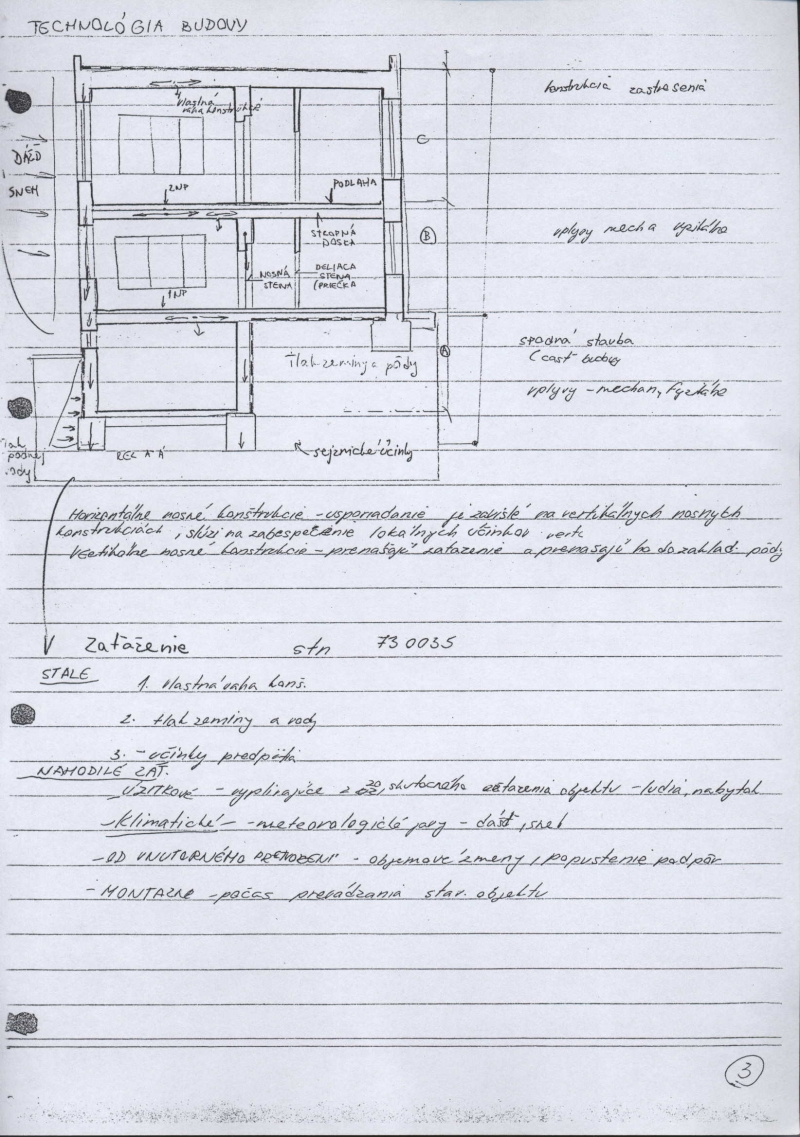 TECHNOLÓGIA BUDOVY
konštrukcia zastrešenia
vlastná
váha konštrukcie
C
DÁŽĎ
SNEH
2NP
PODLAHA
STROPNÁ
DOSKA
B
vplyvy mech a
NOSNÁ
STENA
DELIACA
STENA
(PRIEČKA
1NP
spodná stavba
(časť budovy
A
Tlak zeminy a pôdy
vplyvy - mechan, fyzikálne
Tlak
vody
sejzmické účinky
Horizontálne nosné konštrukcie - usporiadanie je závislé na vertikálnych nosných
konštrukciách, slúži na zabezpečenie lokálnych účinkov vert.
Vertikálne nosné konštrukcie - prenášajú zaťaženie a prenášajú ho do základ. pôdy
Zaťaženie stn 73 0035
STALE
1. vlastná váha konš.
2. tlak zeminy a vody
3. - účinky predpätia
NAHODILÉ ZAŤ.
UŽITKOVÉ - vyplívajúce z skutočného zaťaženia objektu - ludia, nabytok
- Klimatické - - meteorologické javy - dášť, sneh
- OD VNUTORNÉHO PRETVORENÍ - objemové zmeny, popustenie podpôr
- MONTAZNE - počas prevádzania stav. objektu
3